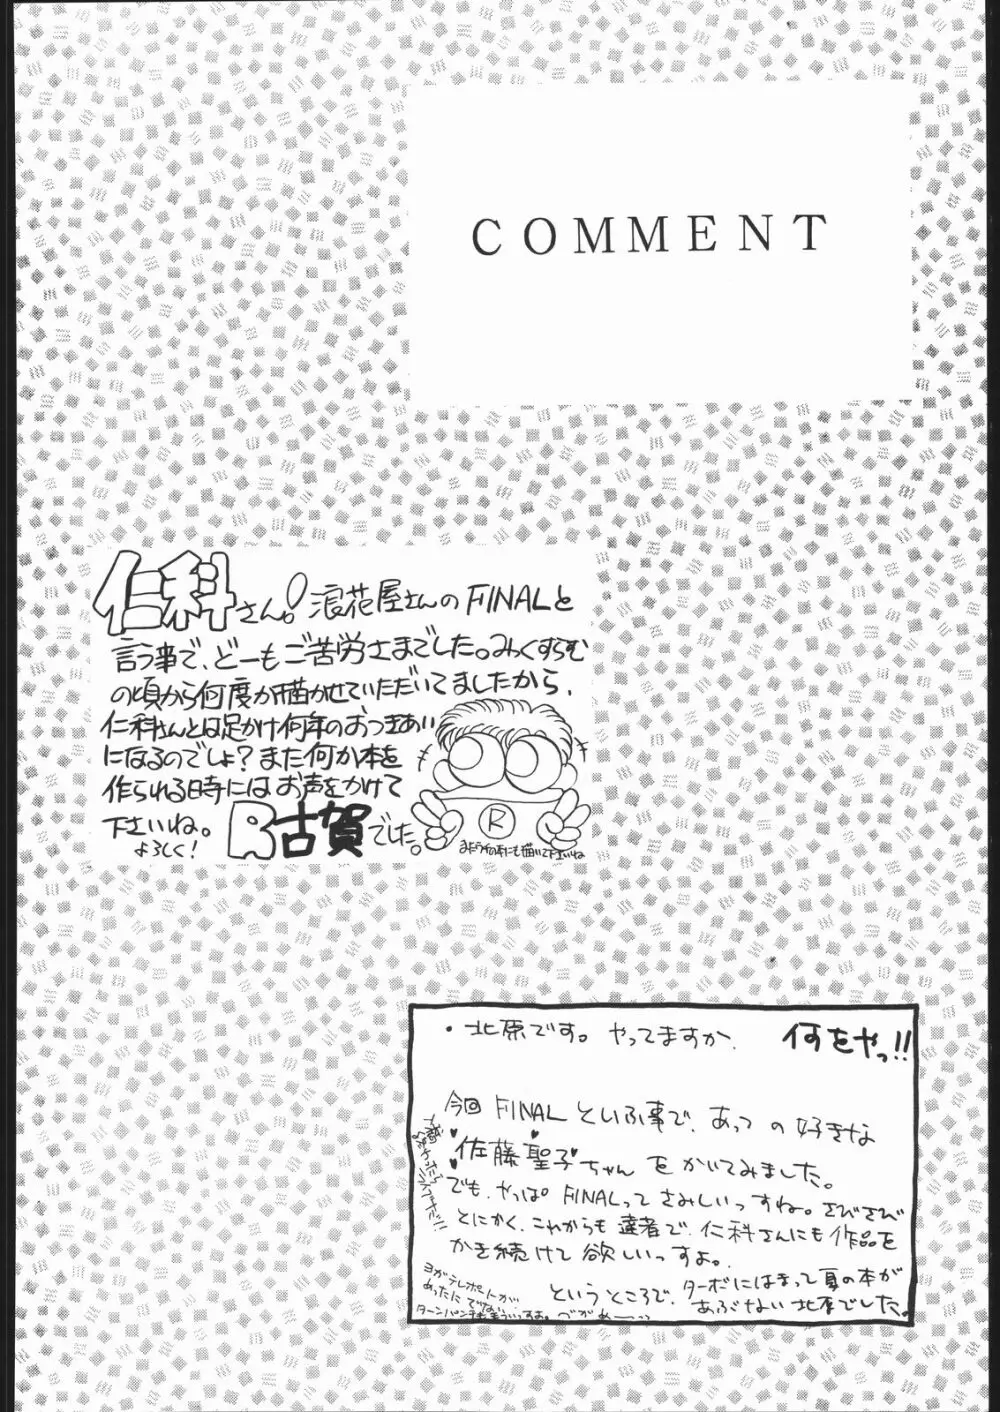 COMMENT
仁科さん!浪花屋さんのFINALと
言う事で、どーもご苦労さまでした。みっくすらむ
の頃から何度か描かせていただいてましたから、
仁科さんとは足かけ何年のおつきあい
になるのでしょ?また何か本を
作られる時にはお声をかけて
下さいね。
よろしく!
R古賀でした。
R
・北原です。やってますか。 何をやっ!!
今回FINALという事で、あっしの好きな
佐藤聖子ちゃんをかいてみました。
でも、やっぱFINALってさみしいっすね。さびさび
とにかく、これからも達者で、仁科さんにも作品を
かき続けて欲しいっすよ。
というところで、ターボにはまって夏の本が
あぶない北原でした。
ヨガテレポートが